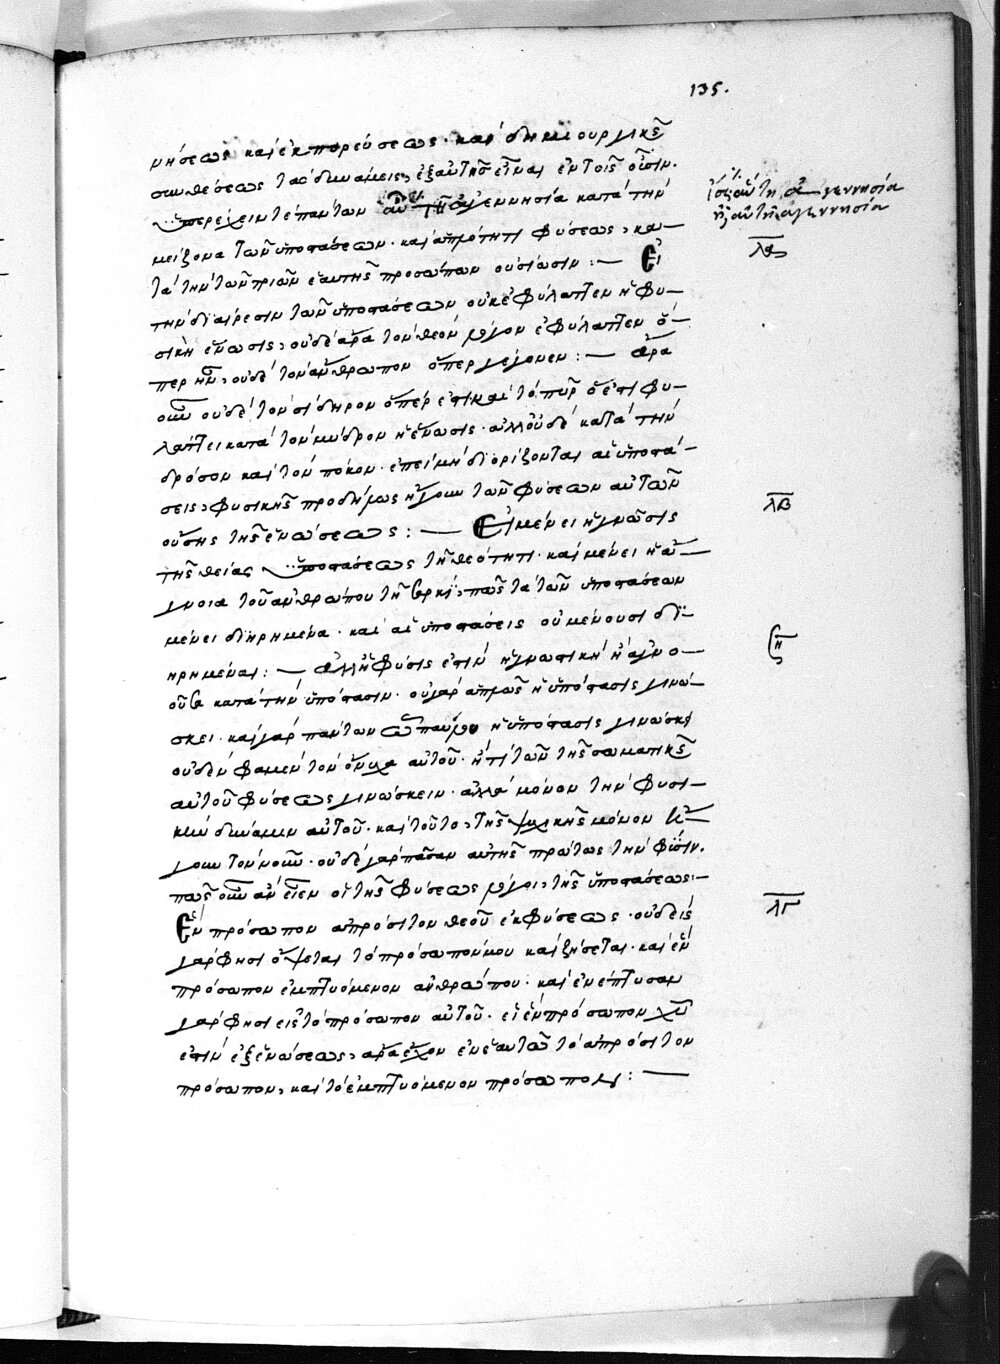 135.
νήσεως καὶ ἐκπορεύσεως· καὶ δημιουργικῆς
συνθέσεως τὰς δυνάμεις, ἐξ αὐτῆς εἶναι ἐν τοῖς οὖσιν.
ὑπερέχειν τε πάντων αὐτῇ ἀγεννησία κατὰ τὴν
μείζονα τῶν ὑποστάσεων· καὶ ἁπλότητι φύσεως, κα-
τὰ τὴν τῶν τριῶν ἑαυτῆς προσώπων οὐσίωσιν :— Εἰ
τὴν διαίρεσιν τῶν ὑποστάσεων οὐκ ἐφύλαττεν ἡ φυ-
σικὴ ἕνωσις, οὐδ' ἄρα τὸν θεὸν λόγον ἐφύλαττεν ὅ-
περ ἦν, οὐδὲ τὸν ἄνθρωπον ὅπερ γέγονεν :— ἆρα
οὖν οὐδὲ τὸν σίδηρον ὅπερ ἐστὶ καὶ τὸ πῦρ ὅ ἐστι φυ-
λάττει κατὰ τὸν μύδρον ἡ ἕνωσις· ἀλλ' οὐδὲ κατὰ τὴν
δρόσον καὶ τὸν πόκον· ἐπεὶ μὴ διορίζονται αἱ ὑποστά-
σεις, φυσικῆς προδήλως ἤγουν τῶν φύσεων αὐτῶν
οὔσης τῆς ἑνώσεως :— Εἰ μένει ἡ γνῶσις
τῆς θείας ὑποστάσεως τῇ θεότητι· καὶ μένει ἡ ἄ-
γνοια τοῦ ἀνθρώπου τῇ σαρκί, πῶς τὰ τῶν ὑποστάσεων
μένει διῃρημένα· καὶ αἱ ὑποστάσεις οὐ μένουσι δι-
ῃρημέναι :— ἀλλ' ἡ φύσις ἐστὶν ἡ γνωστικὴ ἢ ἀγνο-
οῦσα κατὰ τὴν ὑπόστασιν· οὐ γὰρ ἁπλῶς ἡ ὑπόστασις γινώ-
σκει· καὶ γὰρ πάντων ὡς παύλου ἡ ὑπόστασις γινώσκει
οὐδὲν φαμὲν τὸν ὄνυχα αὐτοῦ· ἤ τι τῶν τῆς σωματικῆς
αὐτοῦ φύσεως γινώσκειν· ἀλλὰ μόνον τὴν φυσι-
κὴν δύναμιν αὐτοῦ· καὶ τοῦτο, τῆς ψυχικῆς μόνον ἤ-
γουν τὸν νοῦν· οὐδὲ γὰρ πᾶσαν αὐτῆς πρώτως τὴν φύσιν.
πῶς οὖν ἂν εἶεν οἱ τῆς φύσεως λόγοι, τῆς ὑποστάσεως:—
Ἓν πρόσωπον ἀπρόσιτον θεοῦ ἐκ φύσεως· οὐδεὶς
γάρ φησι ὄψεται τὸ πρόσωπόν μου καὶ ζήσεται· καὶ ἓν
πρόσωπον ἐμπτυόμενον ἀνθρώπου· καὶ ἐνέπτυσαν
γάρ φησι εἰς τὸ πρόσωπον αὐτοῦ· εἰ ἓν πρόσωπον χυ
ἐστὶν ἐξ ἑνώσεως, ἄρα ἔχον ἐν ἑαυτῶ τὸ ἀπρόσιτον
πρόσωπον, καὶ τὸ ἐμπτυόμενον πρόσωπον :—
ἴσως αὕτη ἀγεννησία
ἢ αὐτῇ ἀγεννησία
λα
λβ
λγ